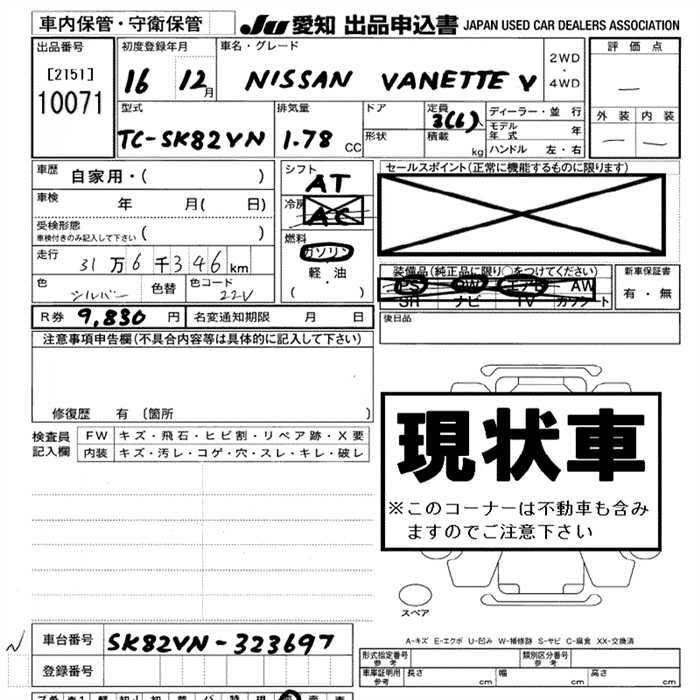 車内保管・守衛保管 JU 愛知 出品申込書 JAPAN USED CAR DEALERS ASSOCIATION
出品番号
[2151]
10071
初度登録年月
16 12月
車名・グレード
NISSAN VANETTE V
2WD
・
4WD
評価点
—
外装 内装
— —
型式
TC-SK82VN
排気量
1.78 CC
ドア
形状
定員
3(6)人
積載 kg
ディーラー・並行
モデル年式 年
ハンドル 左・右
車歴 自家用・( )
車検 年 月( 日)
受検形態
車検付きのみ記入して下さい ( )
走行 31万6千346km
色 シルバー 色替 色コード 22V
シフト
AT
冷房
AC
燃料
ガソリン
軽・油
( )
セールスポイント(正常に機能するものに限ります)
装備品(純正品に限り〇をつけてください)
PS PW エアB AW
SR ナビ TV カセット
新車保証書
有・無
R券 9,830 円 名変通知期限 月 日
後日品
注意事項申告欄(不具合内容等は具体的に記入して下さい)
修復歴 有 〔箇所 〕
検査員
記入欄
FW キズ・飛石・ヒビ割・リペア跡・X要
内装 キズ・汚レ・コゲ・穴・スレ・キレ・破レ
現状車
※このコーナーは不動車も含み
ますのでご注意下さい
スペア
A-キズ E-エクボ U-凹み W-補修跡 S-サビ C-腐食 XX-交換済
車台番号 SK82VN-323697
登録番号
形式指定番号
参考
類別区分番号
参考
車庫証明用
参考
長さ cm 幅 cm 高さ cm